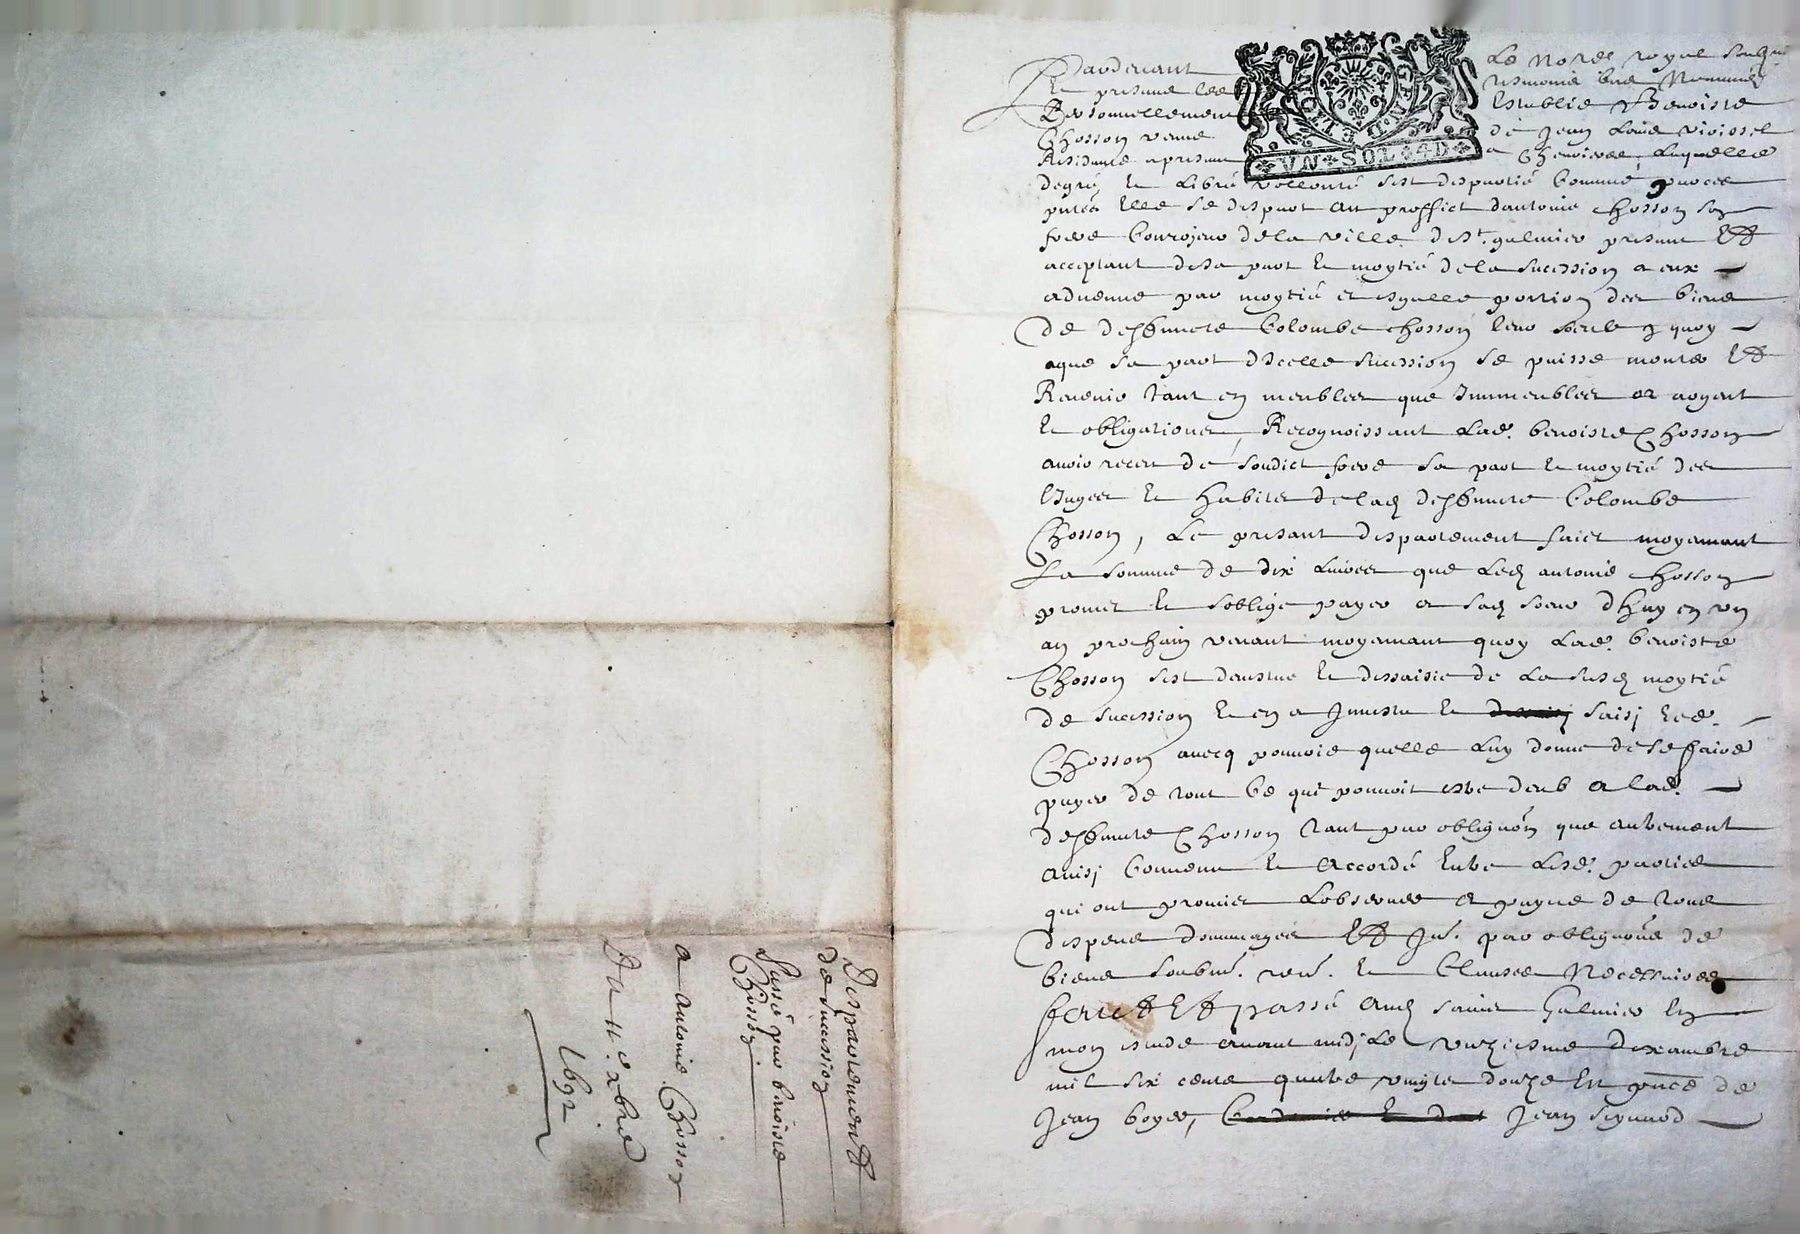 Pardevant Le No.re royal soubzne
Et presance des tesmoins bas Nommés
Personnellement Establie Benoiste
Chosson vefve de Jean
Residante a presant a laquelle
de gré et libre vollonté sest despartie comme
elle se despart au proffict dantoine chosson son
frere conroyeur de la ville de St. galmier presant Et
acceptant de sa part et moytié de la sucession a eux
advenue par moytié et esgalle portion des biens
de deffuncte Colombe chosson leur soeur a quoy
que sa part dicelle sucession se puisse monter Et
Revenir tant en meubles que Immeubles
et obligations, Recognoissant lad. benoiste Chosson
avoir receu de sondict frere sa part et moytié des
linges et habits de lad deffuncte Colombe
Chosson, Le presant despartement faict moyenant
La somme de dix livres que led antoine chosson
promet et soblige payer a sad soeur dhuy en un
an prochain venant moyennant quoy lad. benoiste
Chosson sest devestue et dessaisie de la susd moytié
de sucession et en a Jnvestu et saisj led.
Chosson avecq pouvoir quelle luy donne de se faire
payer de tout Ce qui pouvoit estre deub a lad.
deffuncte Chosson tant par obligaon que autrement
ainsj Convenu et accordé Entre lesd. parties
qui ont promis Lobserver a payne de tous
despens dommages Et Jn. par obligaons de
biens soubm. ren. et Clauses Necessaires
faict Et passé aud sainct Galmier En
mon estude avant midj Le unziesme dexambre
mil six cents quatre vingts douze En pnce de
Jean boyer, Jean signard
Despartement
de Sucession
passé par benoiste
Chosson
a antoine Chosson
Du 11.e xbre
1692
UN SOL 4 D